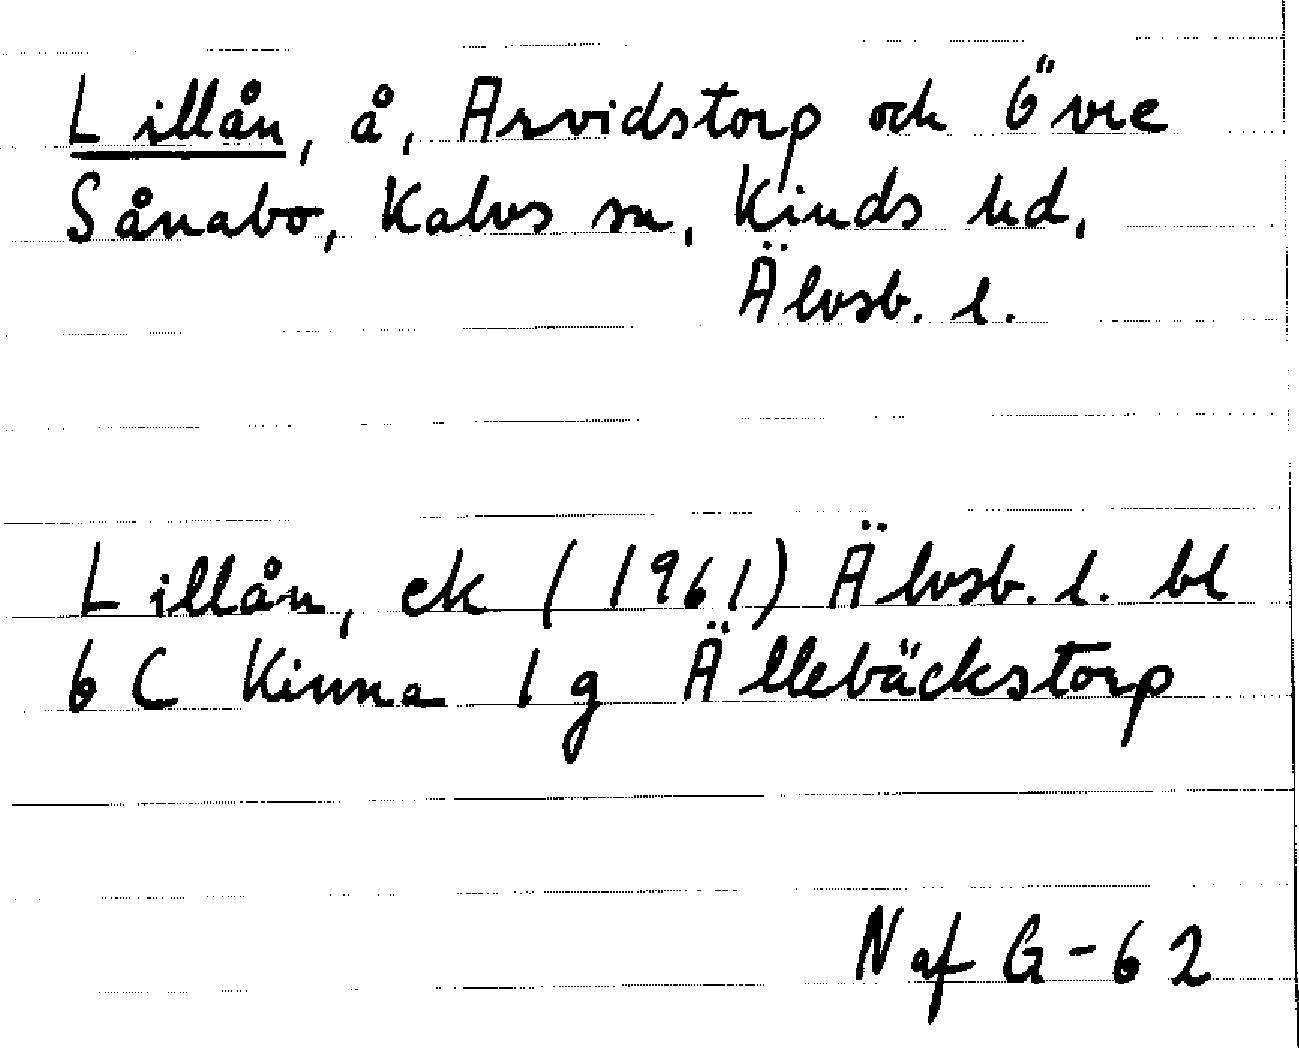 Lillån, å, Arvidstorp och Övre
Sånabo, Kalvs sn, Kinds hd,
Älvsb. l.
Lillån, ek (1961) Älvsb. l. bl
6 C Kinna 1 g Ällebäckstorp
N af G-62